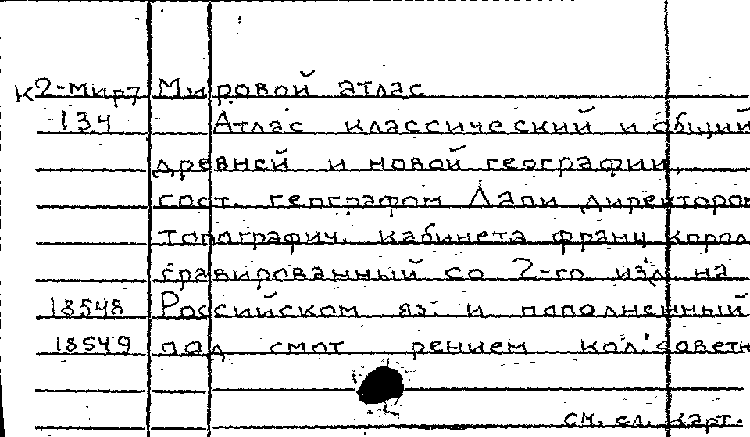 К2-Мир7 Мировой атлас
134 Атлас классический и общий
древней и новой географии,
сост. географом Лапи директором
топографич. кабинета франц. корол
гравированный со 2-го изд. на
18548 Российском яз. и пополненный
18549 под смот рением кол. советн
см. сл. карт.